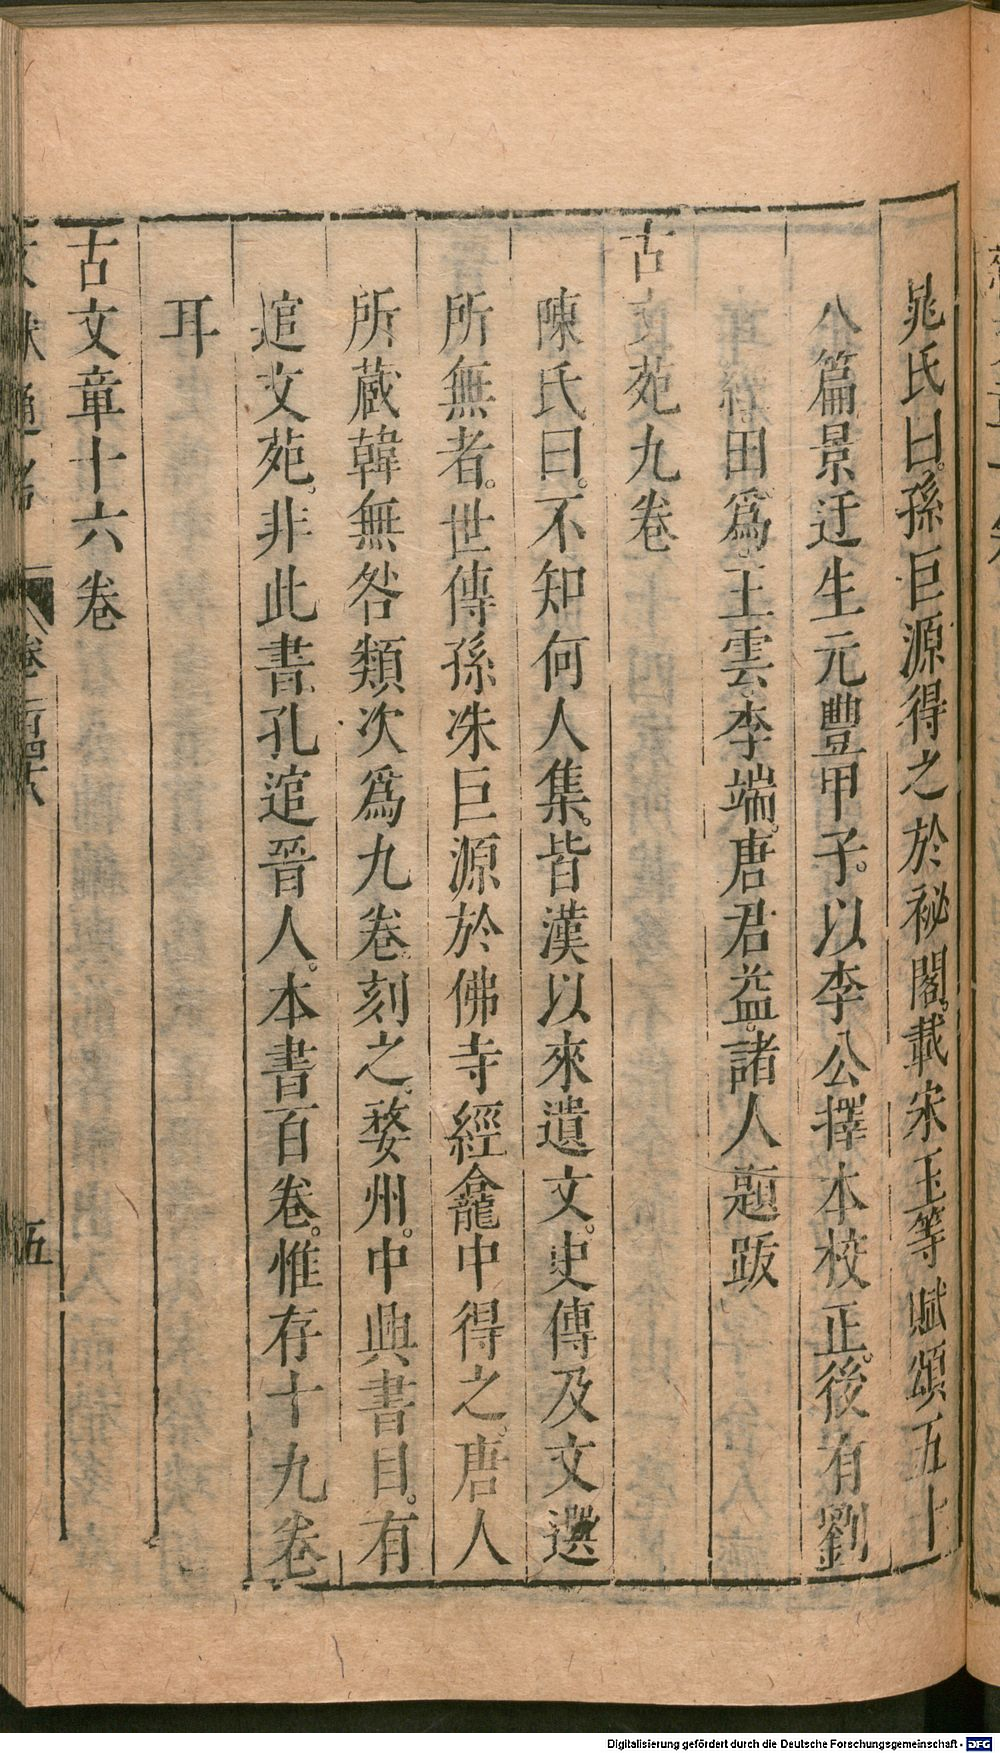 晁氏曰。孫巨源得之於祕閣。載宋玉等賦頌五十
八篇景迂生元豐甲子。以李公擇本校正。後有劉
田爲。王雲李端。唐君益。諸人題跋
古文苑九卷
陳氏曰。不知何人集。皆漢以來遺文。史傳及文選
所無者。世傳孫洙巨源於佛寺經龕中得之。唐人
所蔵韓無咎類次爲九卷。刻之。婺州。中興書目。有
逭文苑。非此書。孔逭晉人。本書百卷。惟存十九卷
耳
古文章十六卷
文獻通考 卷二百四十八 五
Digitalisierung gefördert durch die Deutsche Forschungsgemeinschaft - DFG